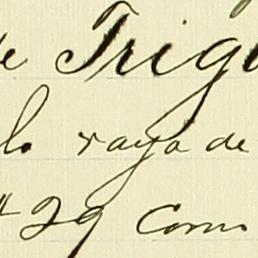 de Trigo
lo raya de
# 29 Como